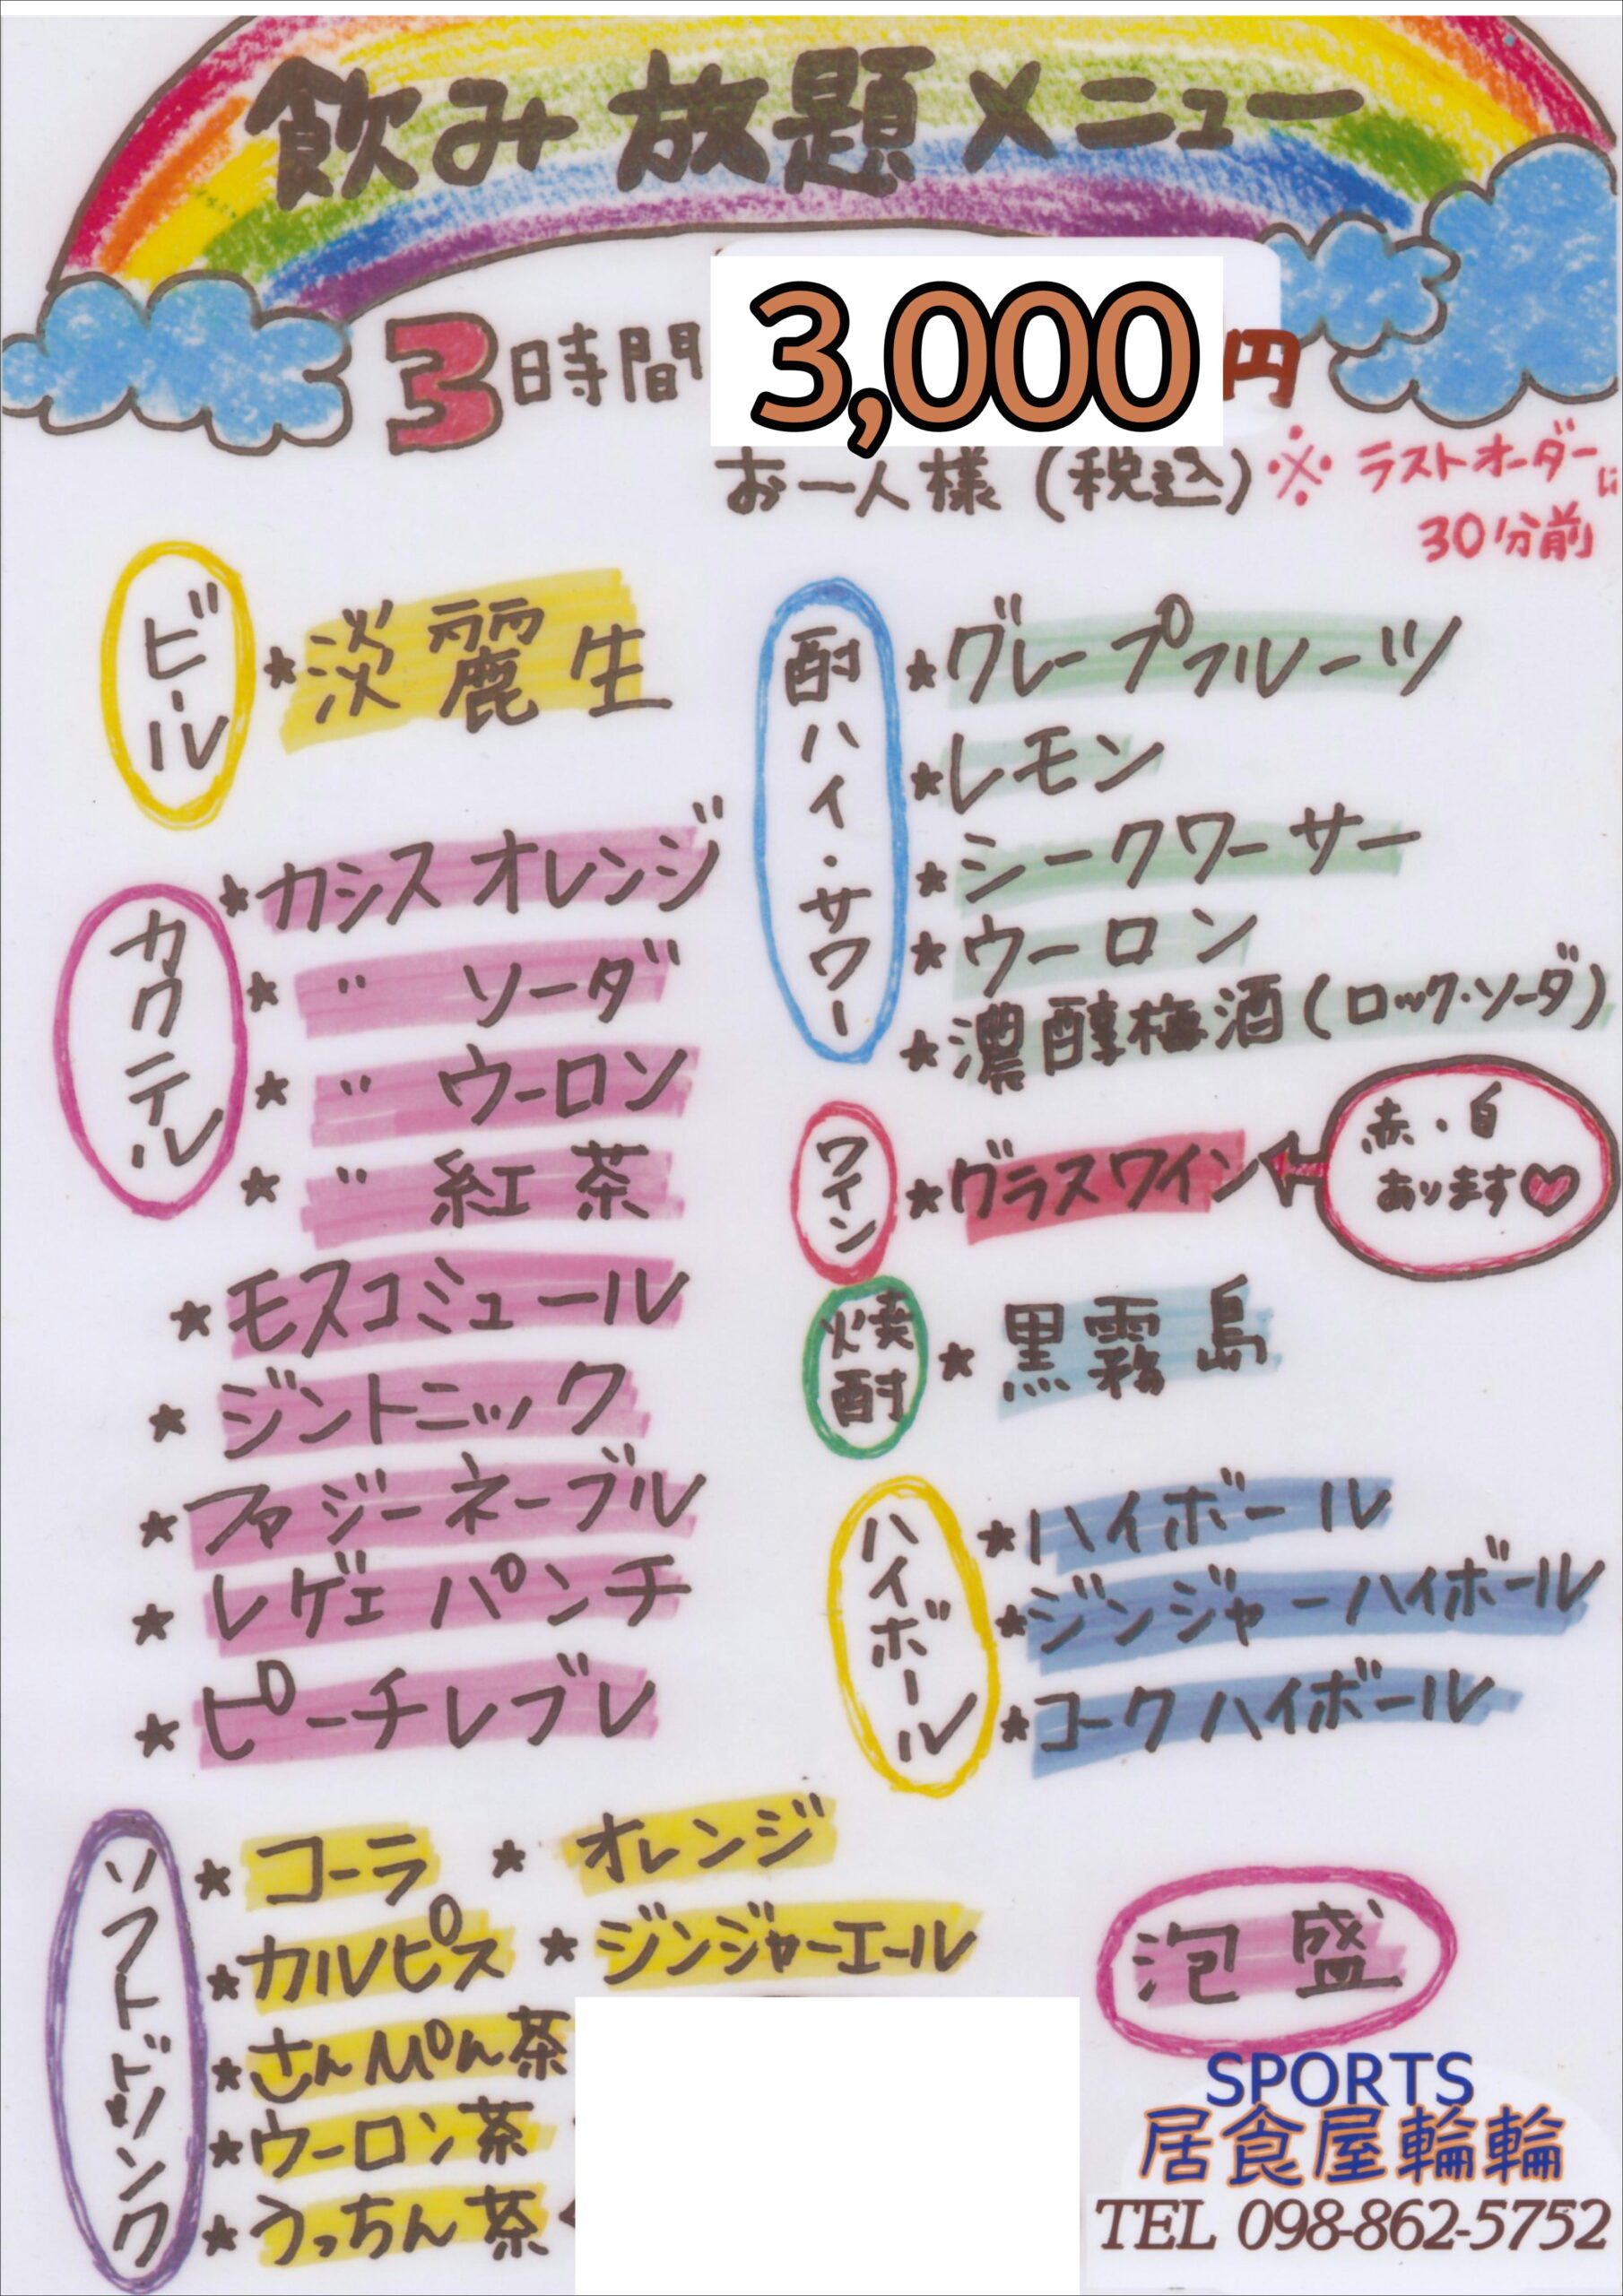 飲み放題メニュー
3時間 3,000円
お一人様(税込)
※ ラストオーダーは
30分前
ビール
★淡麗生
カクテル
★カシスオレンジ
★ 〃 ソーダ
★ 〃 ウーロン
★ 〃 紅茶
★モスコミュール
★ジントニック
★ファジーネーブル
★レゲェパンチ
★ピーチレブレ
酎ハイ・サワー
★グレープフルーツ
★レモン
★シークワーサー
★ウーロン
★濃醇梅酒(ロック・ソーダ)
ワイン
★グラスワイン
赤・白
あります♡
焼酎
★黒霧島
ハイボール
★ハイボール
★ジンジャーハイボール
★コークハイボール
ソフトドリンク
★コーラ ★オレンジ
★カルピス ★ジンジャーエール
★さんぴん茶
★ウーロン茶
★うっちん茶
泡盛
SPORTS
居食屋輪輪
TEL 098-862-5752